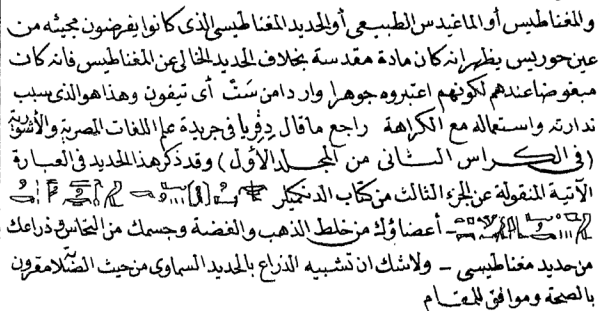 والمغناطيس أو الماغيدس الطبيعى أو الحديد المغناطيسى الذى كانوا يفرضون مجيئه من
عين حوريس يظهرانه كان مادة مقدسة بخلاف الحديد الخالى عن المغناطيس فانه كان
مبغوضا عندهم لكونهم اعتبروه جوهرا واردا من سَتّ أى تيفون وهذا هو الذى سبب
ندارته واستعماله مع الكراهة راجع ماقال دِوٍريا فى جريدة علم اللغات المصرية والأشورية
(فى الكراس الثانى من المجلد الأول) وقد ذكر هذا الحديد فى العبارة
الآتية المنقولة عن الجزء الثالث من كتاب الدنخميلر
– أعضاؤك من خلط الذهب والفضة وجسمك من النحاس وذراعك
من حديد مغناطيسى – ولاشك ان تشبيه الذراع بالحديد السماوى من حيث الصّلابة مقرون
بالصحة وموافق للمقام